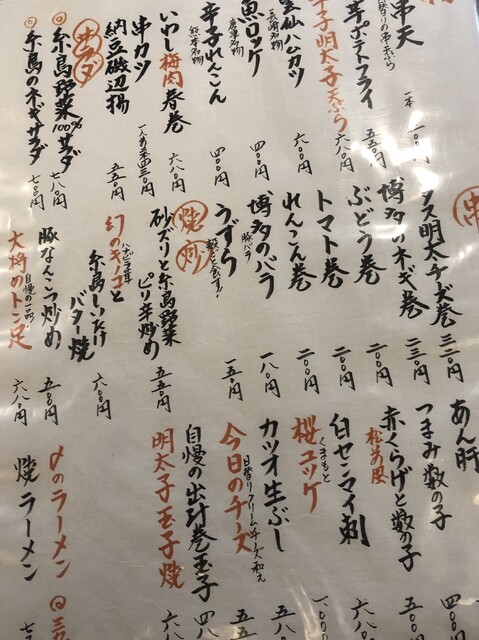 串天
日替りの串天ぷら
一本 一〇〇円
芋ポテトフライ
五五〇円
辛子明太子天ぷら
六八〇円
雲仙ハムカツ
長崎名物
六〇〇円
魚ロッケ
唐津名物
四〇〇円
辛子れんこん
熊本名物
四〇〇円
いわし梅肉春巻
六八〇円
串カツ
納豆磯辺揚
五五〇円
サラダ
◎糸島野菜100%サラダ
七八〇円
◎糸島のネギサラダ
七〇〇円
串
タス明太チーズ巻
三二〇円
博多のネギ巻
二三〇円
ぶどう巻
二〇〇円
トマト巻
二〇〇円
れんこん巻
二〇〇円
博多のバラ
豚バラ
一八〇円
うずら
殻ごと食す!
一五〇円
焼 炒
砂ズリと糸島野菜
ピリ辛炒め
五五〇円
幻のキノコと
糸島しいたけ
バター焼
六〇〇円
豚なんこつ炒め
五五〇円
大将のトン足
自慢の一品!
六八〇円
あん肝
つまみ数の子
赤くらげと数の子
松前屋
白センライ刺
桜ユッケ
くまもと
カツオ生ぶし
今日のチーズ
日替りクリームチーズ和え
自慢の出汁巻玉子
明太子玉子焼
〆のラーメン
焼ラーメン